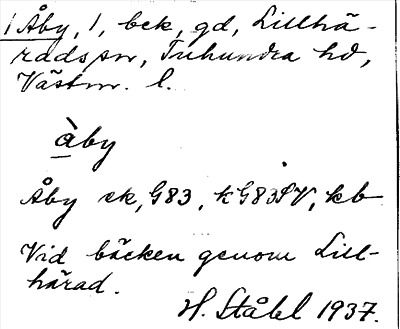 1 Åby, 1, bek, gd, Lillhä-
radssn, Tuhundra hd,
Västm. l.
àby
Åby ek, G83, kG83SV, kb
Vid bäcken genom Lill-
härad.
H. Ståhl 1937.